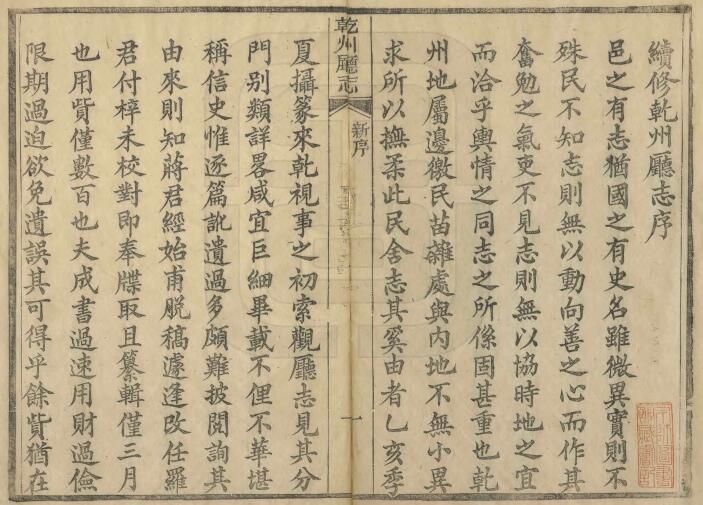 續修乾州廳志序
邑之有志猶國之有史名雖微異實則不
殊民不知志則無以動向善之心而作其
奮勉之氣吏不見志則無以協時地之宜
而洽乎輿情之同志之所係固甚重也乾
州地屬邊徼民苗雜處與內地不無小異
求所以撫柔此民舍志其奚由者乙亥季
乾州廳志
新序
一
夏攝篆來乾視事之初索觀廳志見其分
門别類詳畧咸宜巨細畢載不俚不華堪
稱信史惟逐篇訛遺過多頗難披閱詢其
由來則知蔣君經始甫脫稿遽逢改任羅
君付梓未校對即奉牒取且纂輯僅三月
也用貲僅數百也夫成書過速用財過儉
限期過迫欲免遺誤其可得乎餘貲猶在